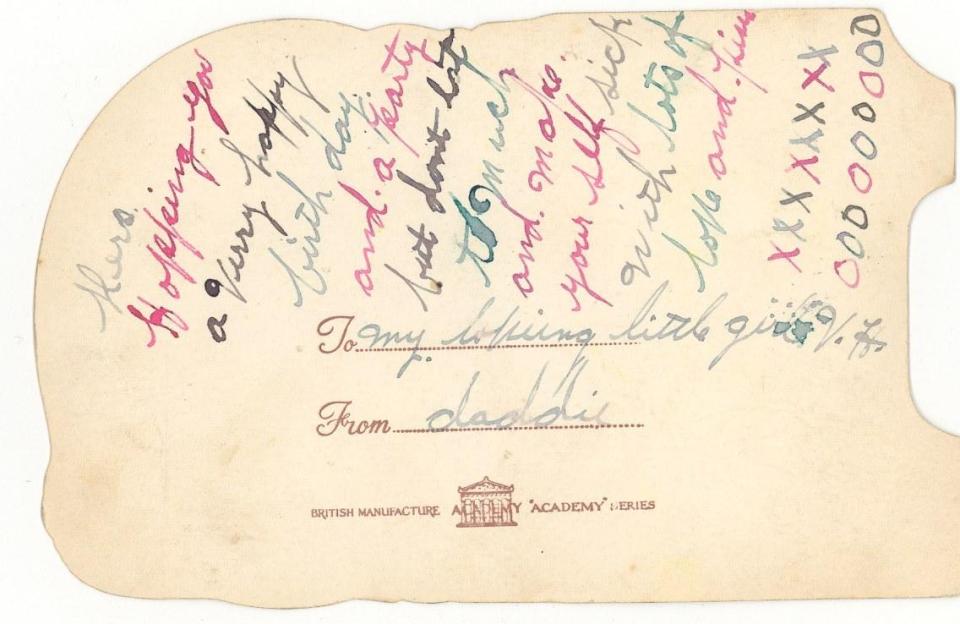 hers.
Hopping you
a verry happy
birth day.
and. a party
but dont eat
to much
and. make.
your self sick
with lots of
love and. kiss
X X X X X X X X
0 0 0 0 0 0 0 0 0
To my loveing little girl V. H.
From daddie
BRITISH MANUFACTURE ACADEMY "ACADEMY" SERIES